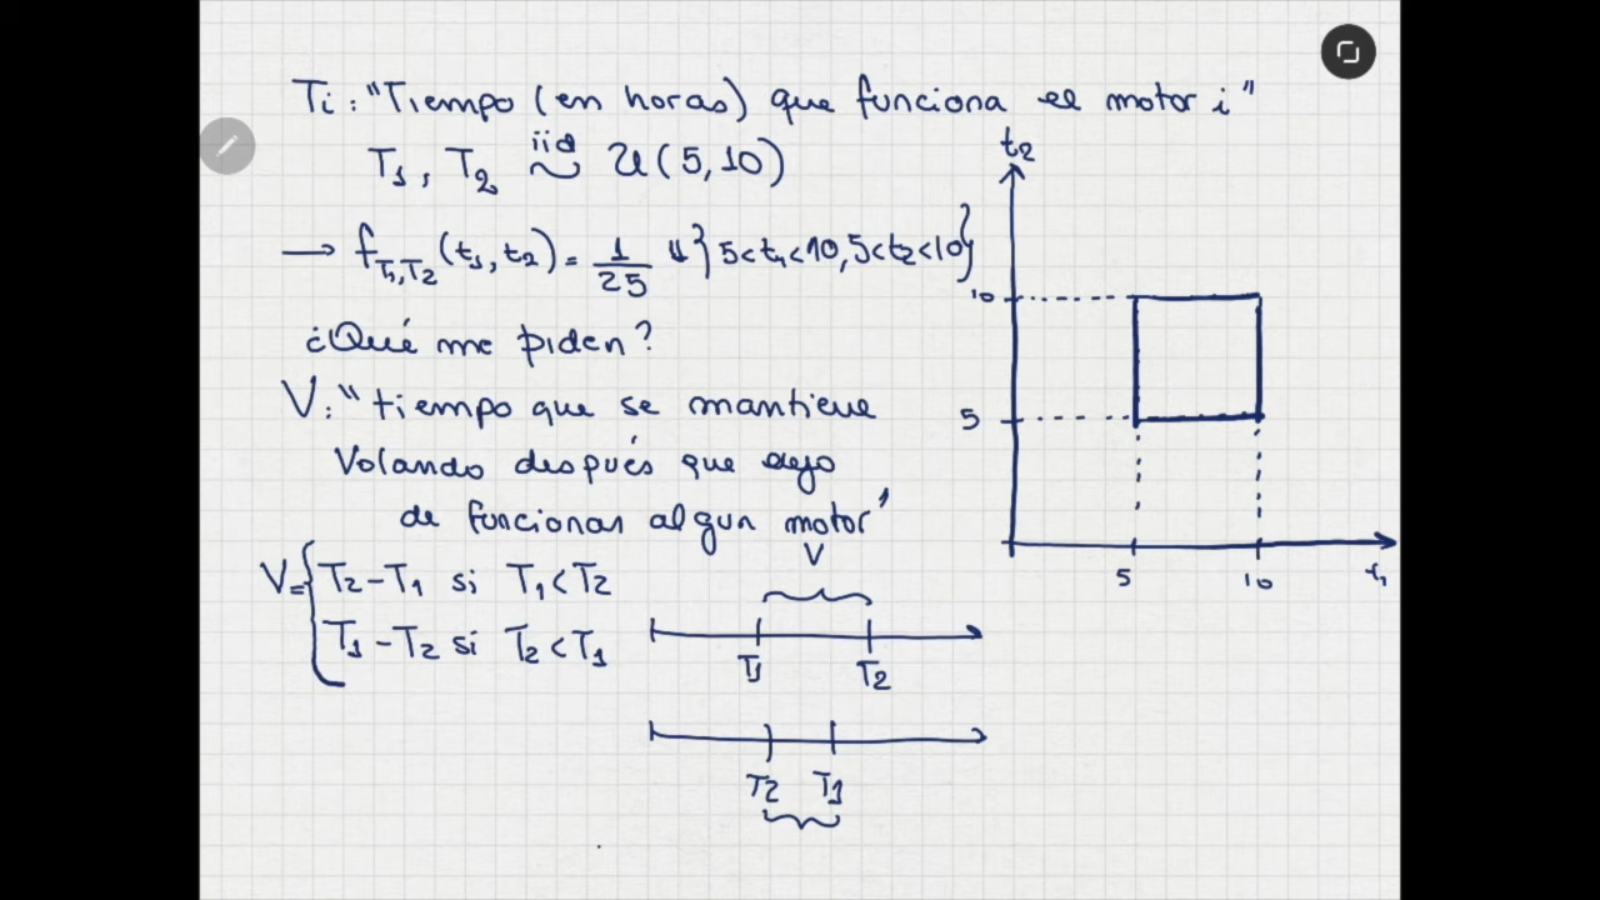 Ti: "Tiempo (en horas) que funciona el motor i"
T1, T2 iid ~ U(5,10)
→ fT1,T2(t1,t2) = 1/25 1{5<t1<10, 5<t2<10}
¿Qué me piden?
V: "tiempo que se mantiene
Volando después que dejo
de funcionar algun motor"
V = { T2-T1 si T1<T2
T1-T2 si T2<T1
V
T1 T2
T2 T1
t2
10
5
5 10 t1